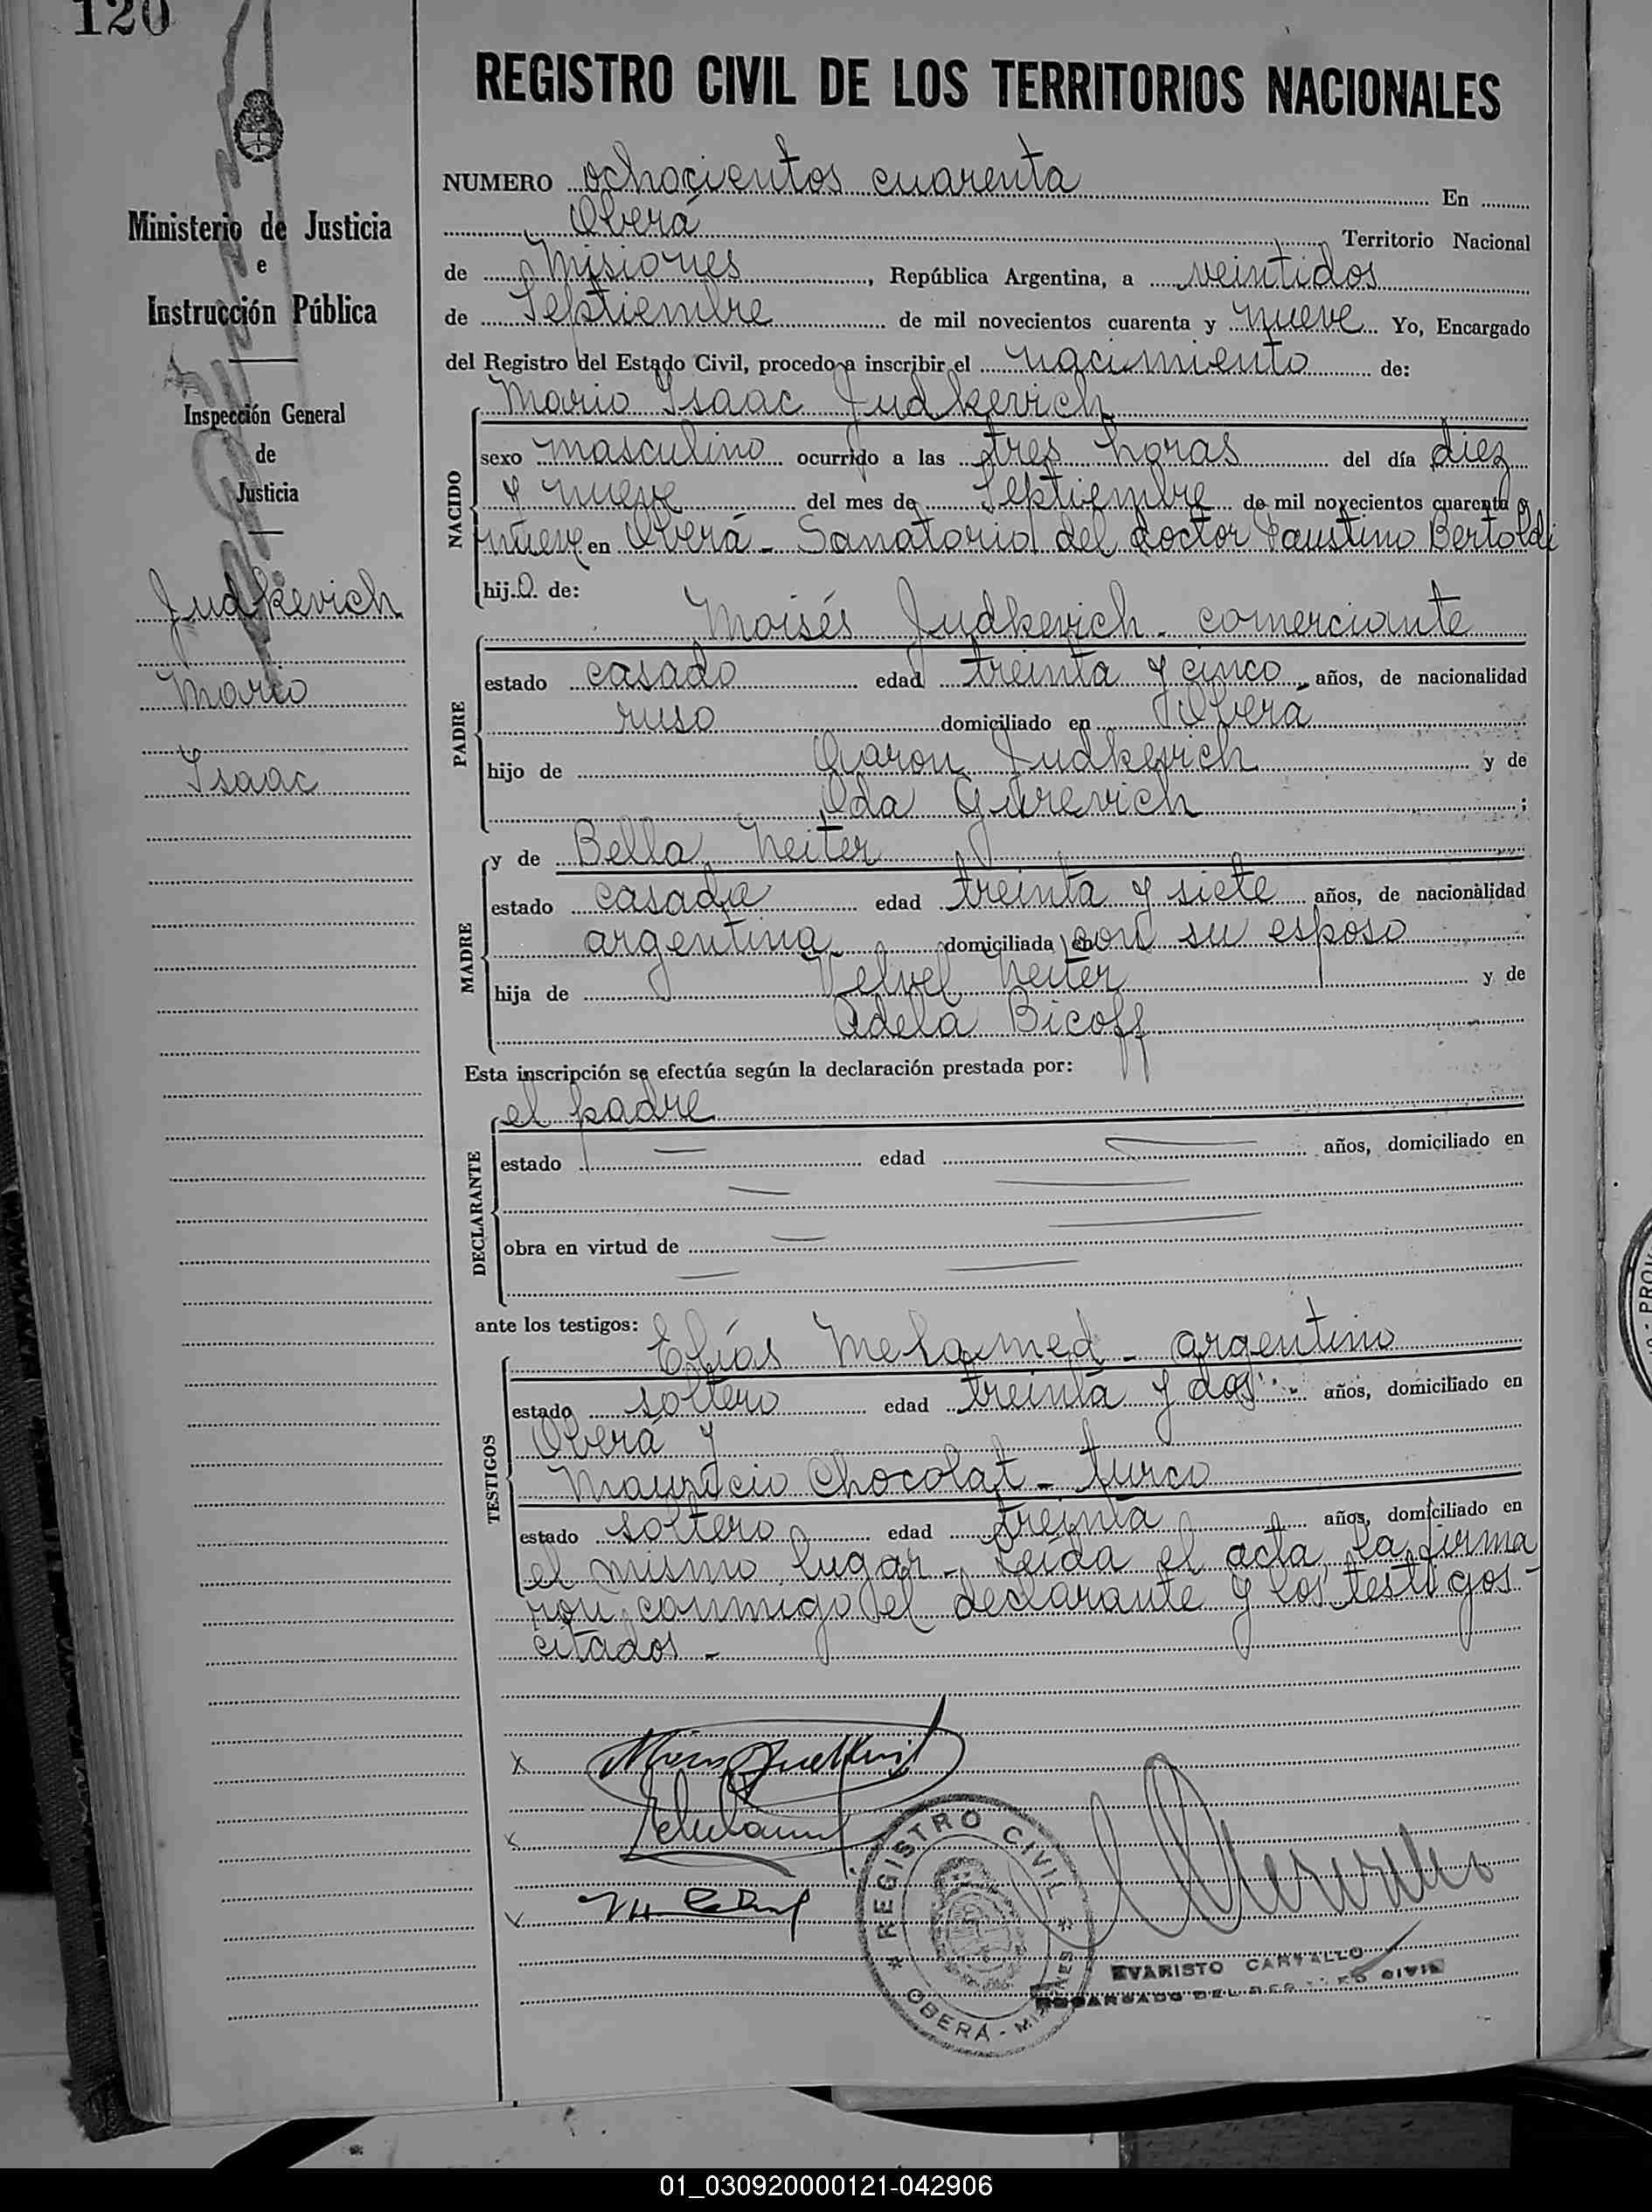 120
REGISTRO CIVIL DE LOS TERRITORIOS NACIONALES
Ministerio de Justicia
e
Instrucción Pública
Inspección General
de
Justicia
Judkevich
Mario
Isaac
NUMERO ochocientos cuarenta En
Oberá Territorio Nacional
de Misiones, República Argentina, a veintidos
de Septiembre de mil novecientos cuarenta y nueve Yo, Encargado
del Registro del Estado Civil, procedo a inscribir el nacimiento de:
NACIDO
Mario Isaac Judkevich
sexo masculino ocurrido a las tres horas del día diez
y nueve del mes de Septiembre de mil novecientos cuarenta y
nueve en Oberá - Sanatorio del doctor Faustino Bertoldi
hij.o. de:
PADRE
Moisés Judkevich - comerciante
estado casado edad treinta y cinco años, de nacionalidad
ruso domiciliado en Oberá
hijo de Aaron Judkevich y de
Ida Gurevich ;
MADRE
y de Bella Neiter
estado casada edad treinta y siete años, de nacionalidad
argentina domiciliada en con su esposo
hija de Velvel Neiter y de
Adela Bicoff
Esta inscripción se efectúa según la declaración prestada por:
DECLARANTE
el padre
estado — edad — años, domiciliado en
obra en virtud de —
ante los testigos:
TESTIGOS
Elías Melamed - argentino
estado soltero edad treinta y dos años, domiciliado en
Oberá y
Mauricio Chocolat - turco
estado soltero edad treinta años, domiciliado en
el mismo lugar - Leída el acta, la firma
ron conmigo el declarante y los testigos -
citados -
REGISTRO CIVIL
OBERÁ - MISIONES
EVARISTO CARVALLO
ENCARGADO DEL REGISTRO CIVIL
01_030920000121-042906